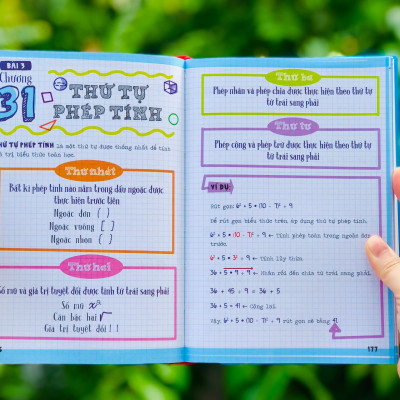 BÀI 3
Chương
31
THỨ TỰ
PHÉP TÍNH
THỨ TỰ PHÉP TÍNH là một thứ tự được thống nhất để tính
giá trị biểu thức toán học.
Thứ nhất
Bất kì phép tính nào nằm trong dấu ngoặc được
thực hiện trước tiên
Ngoặc đơn ( )
Ngoặc vuông [ ]
Ngoặc nhọn { }
Thứ hai
Số mũ và giá trị tuyệt đối được tính từ trái sang phải
Số mũ xª
Căn bậc hai √
Giá trị tuyệt đối | |
Thứ ba
Phép nhân và phép chia được thực hiện theo thứ tự
từ trái sang phải
Thứ tư
Phép cộng và phép trừ được thực hiện theo thứ tự
từ trái sang phải
VÍ DỤ:
Rút gọn: 6² + 5 • (10 - 7)² ÷ 9
Để rút gọn biểu thức trên, áp dụng thứ tự phép tính.
6² + 5 • (10 - 7)² ÷ 9 ← Tính phép toán trong ngoặc đơn
trước.
6² + 5 • 3² ÷ 9 ← Tính lũy thừa.
36 + 5 • 9 ÷ 9 ← Nhân rồi đến chia từ trái sang phải.
36 + 45 ÷ 9 = 36 + 5
36 + 5 = 41 ← Cộng lại.
Vậy, 6² + 5 • (10 - 7)² ÷ 9 rút gọn sẽ bằng 41.
177